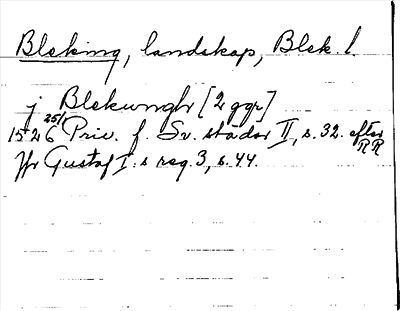 Bleking, landskap, Blek. l.
j Blekungh [2 ggr]
1526 25/1 Priv. f. Sv. städer II, s. 32. efter RR
Jfr Gustaf I:s reg. 3, s. 44.